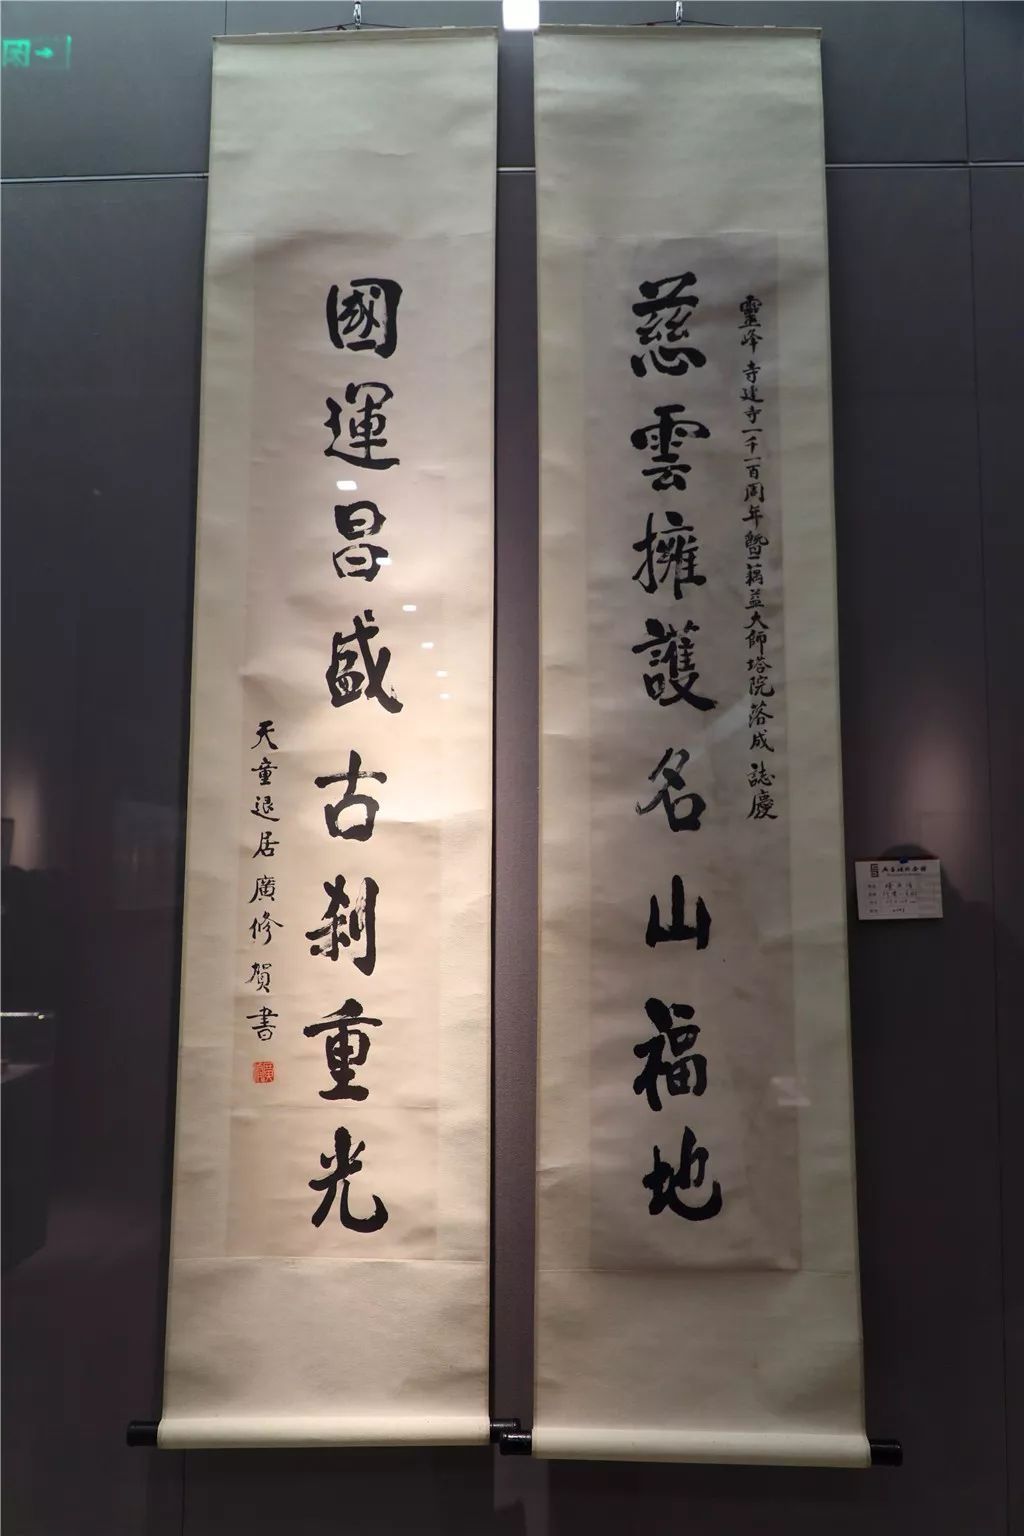 靈峰寺建寺一千一百周年暨蕅益大師塔院落成誌慶
慈雲擁護名山福地
國運昌盛古刹重光
天童退居廣修賀書